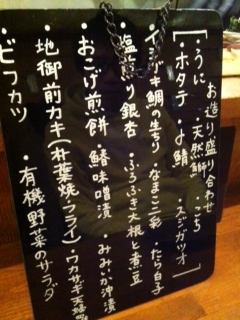 お造り盛り合わせ
・うに ・天然鰤 ・こち
・ホタテ ・〆鯖 ・スジガツオ
・イシダキ鯛の生ちり ・なまこ二彩 ・たら白子
・塩煎り銀杏 ・ふろふき大根と煮豆
・おこげ煎餅 ・鰆味噌漬 ・みみいか沖漬
・地御前カキ(朴葉焼・フライ) ワカサギ天婦羅
・ビフカツ ・有機野菜のサラダ